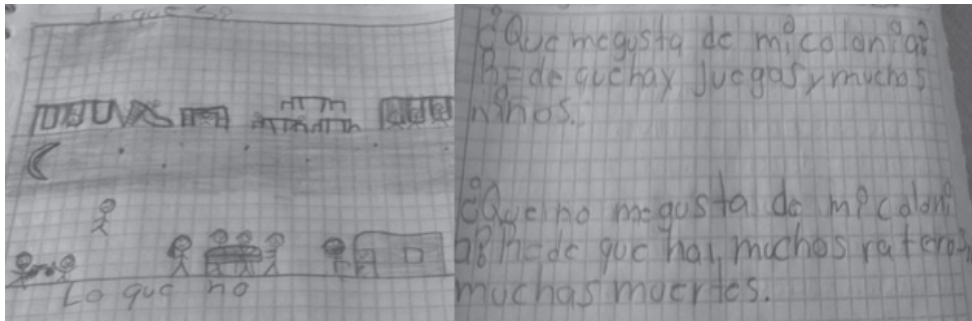 Lo que si
Lo que no
¿Que megusta de mi colonia?
R=de que hay juegos y muchos
niños.
¿Que no megusta de mi coloni
a? R=de que hai muchos rateros,
muchas muertes.